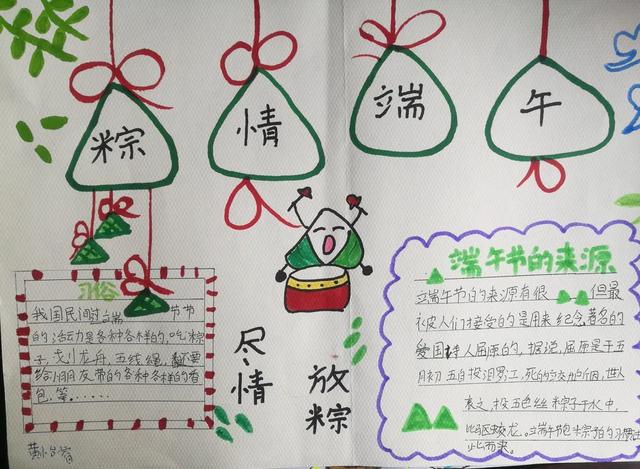 粽 情 端 午
习俗
我国民间过端 节节
的活动是多种各样的,吃粽
子,戈刂龙舟,五线绳,还要
给朋友带的各种各样的香
包,等......
尽情
放粽
端午节的来源
端午节的来源有很 但最
被人们接受的是用来纪念著名的
爱国诗人屈原的,据说,屈原是于五
月初五自投汨罗江,死后为
哀之,投五色丝粽子于水中,
比区蛟龙。端午节包粽子的习惯
此而来。